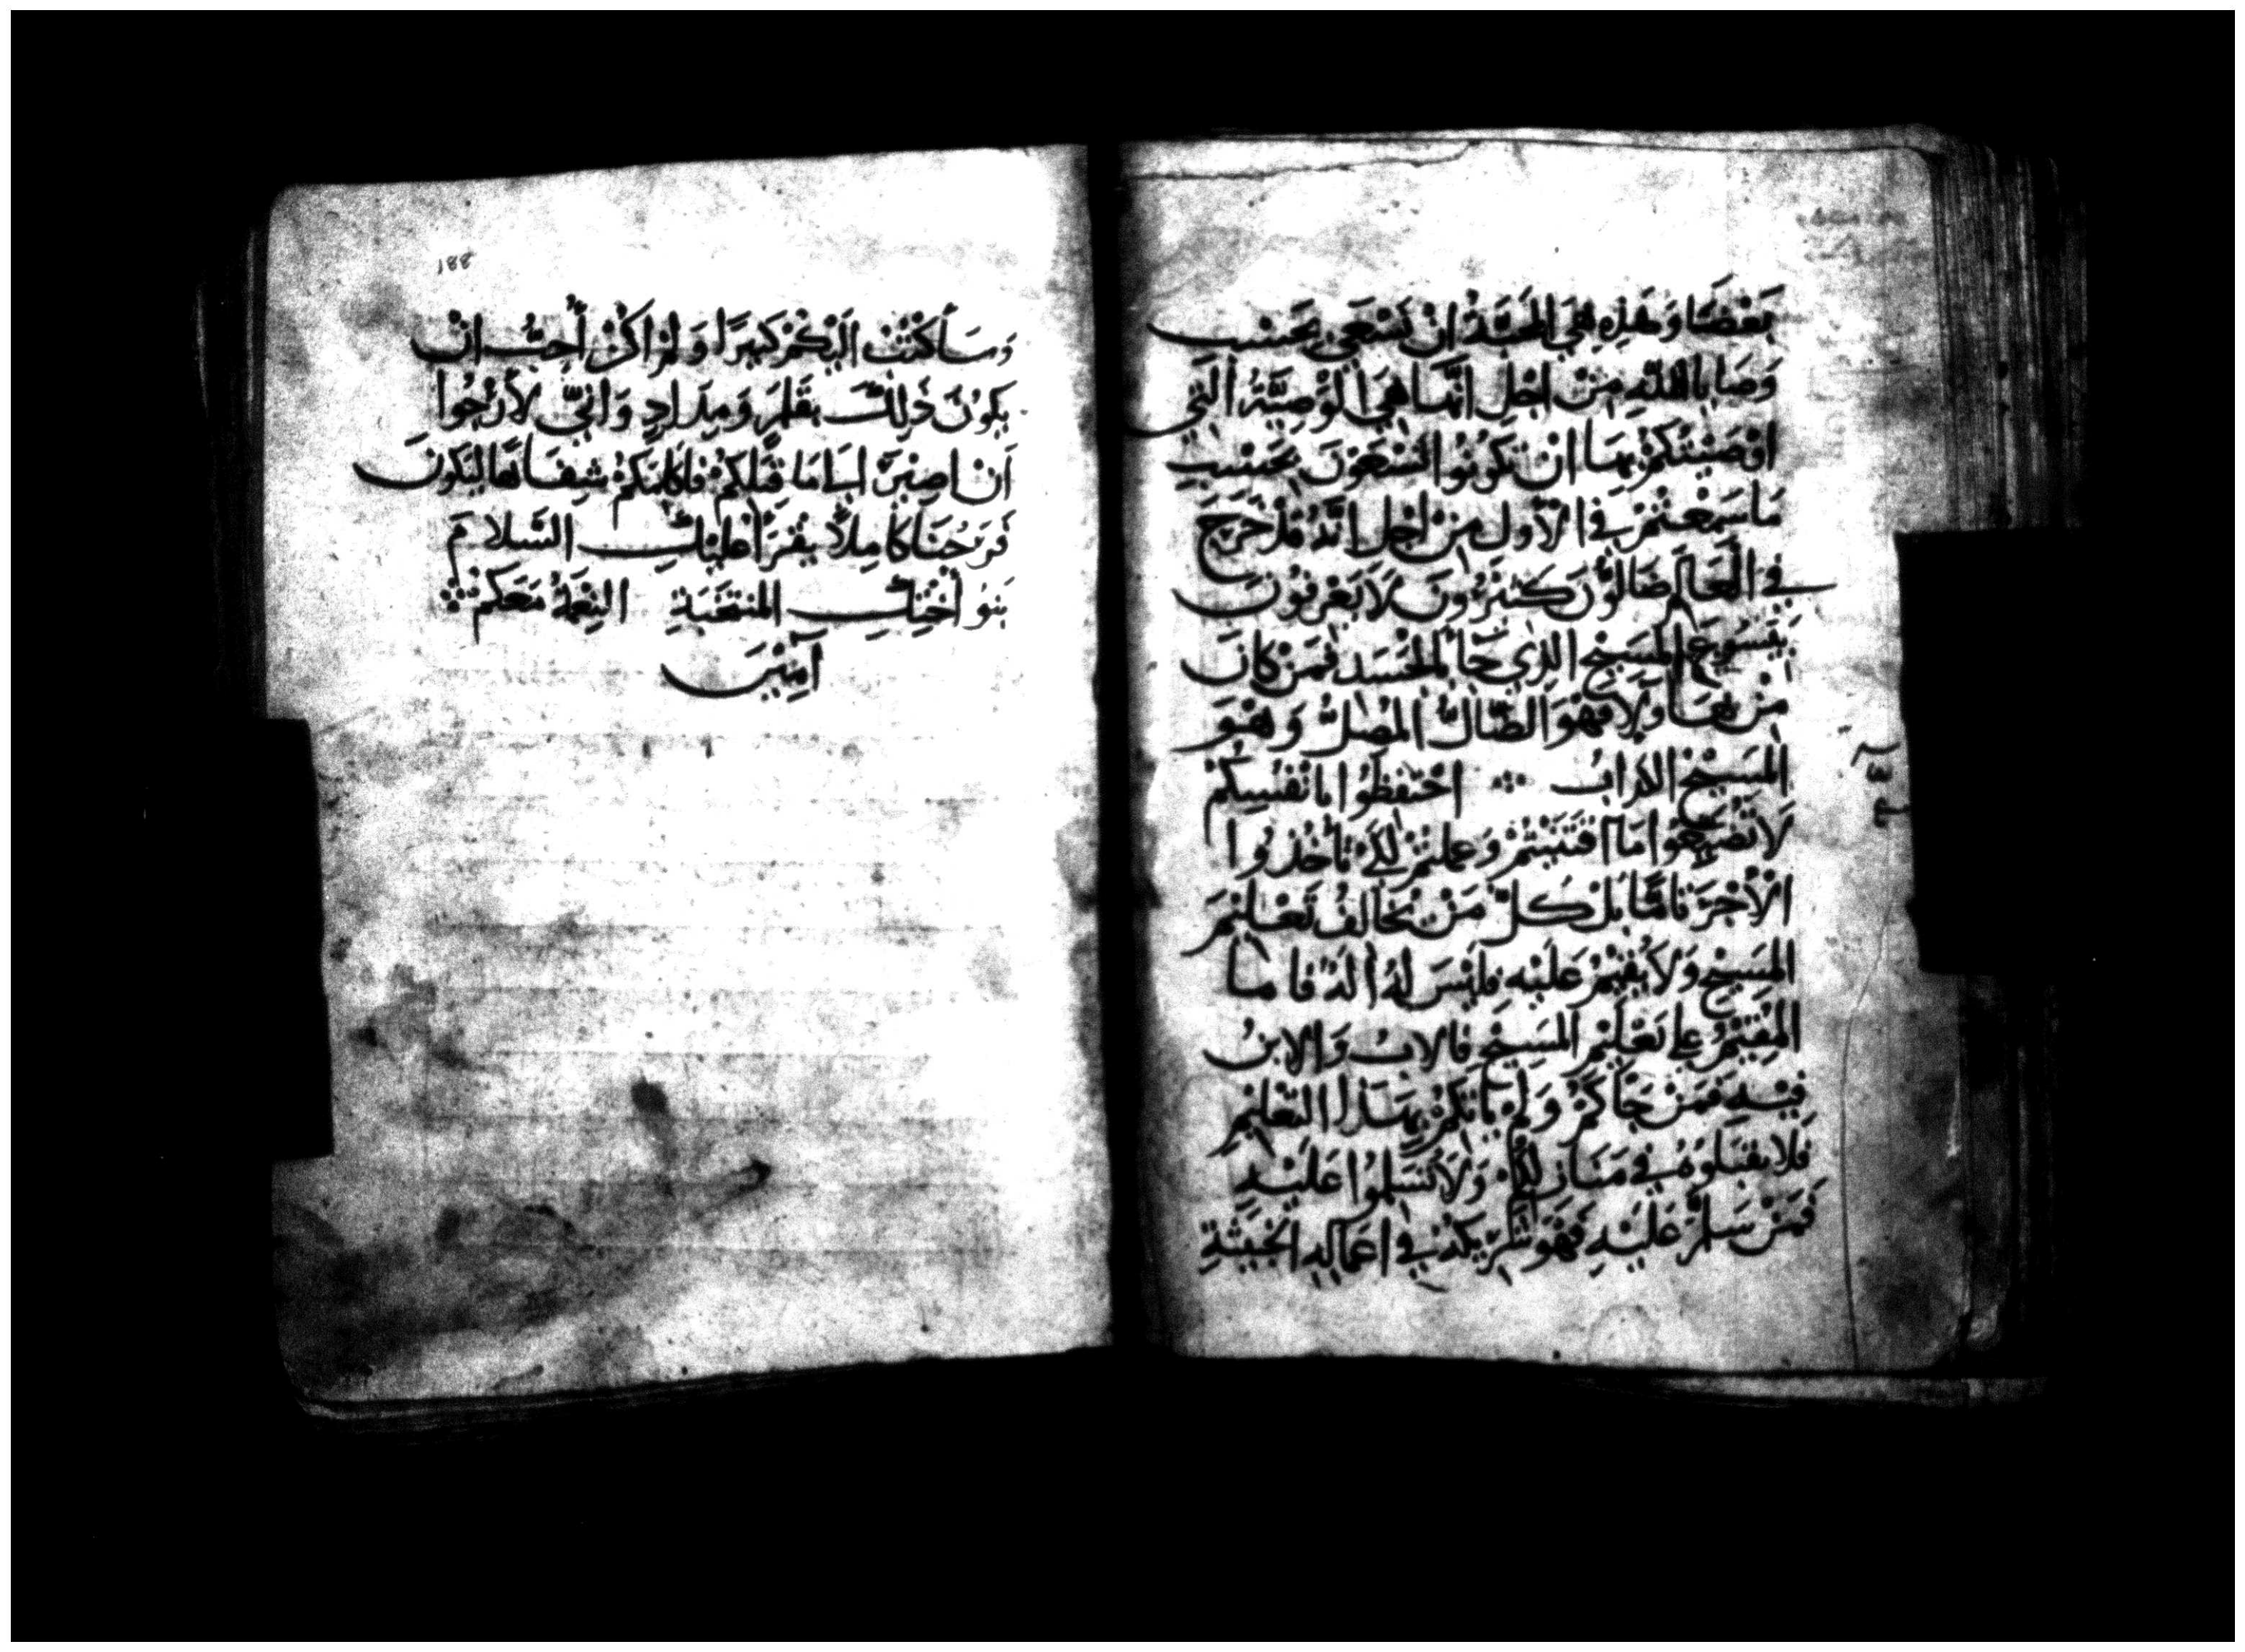 بَعْضَنا وَهَذِهِ هِيَ المَحَبَّةُ انْ نَسْعَى بِحَسْبِ
وَصَايا اللهِ مِنْ اجْلِ انَّهَا هِيَ الوَصِيَّةُ الَّتِي
اوْصَيْتُكُمْ بِهَا انْ تَكُونُوا تَسْعَوْنَ بِحَسْبِ
مَا سَمِعْتُمْ فِي الأَوَلِ مِنْ اجْلِ انَّهُ قَدْ خَرَجَ
فِي العَالَمِ ضَالُّوْنَ كَثِيْرُونَ لَا يَعْرِفُونَ
يَسُوعَ المَسِيْحِ الذِي جَا بالجَسَد فَمَنْ كانَ
مِنْ هَاوُلا فَهُوَ الضَّالُّ المُضِلُّ وَهُوَ
المَسِيْحُ الكَدابُ ܀ احْتَفِظُوا بانْفُسِكُمْ
لَا تُضَيِّعُوا مَا اقْتَنَيْتُمْ وَعمِلْتُمْ لِكَيْ تأْخُذُوا
الأَجْرَ تامًّا بَلْ كُلّ مَنْ يُخالِفُ تَعْلِيْمَ
المَسِيْحِ وَلَا يُقِيْمُ عَلَيْهِ فلَيْسَ لَهُ الَهٌ فامــا
المُقِيْمُ عَلى تَعْلِيْمِ المَسِيْحِ فالابُ وَالابنُ
فِيْهِ فَمَنْ جَاكُمْ وَلَمْ ياتِكُمْ بِهَذا التَعْلِيْمِ
فَلا تقبَلوهُ فِي مَنَازِلِكُمْ وَلَا تُسَلِّمُوا عَلَيْهِ
فَمَنْ سَلَّمَ عَلَيْهِ فَهُوَ شَرِيْكُهُ فِي اعمَالِهِ الخَبِيثَةِ
188
وَسَأَكتُبُ الَيْكُمْ كَثِيْرًا وَلَمْ اكُنْ أُحِبُّ انْ
يَكُونَ ذَلِكَ بِقَلَمٍ وَمِدَادٍ وَانِّي لأَرْجُوا
اَنْ اصِيْرَ الى مَا قِبَلِكُمْ فاكلمَكُمْ شِفَاهًا لِيَكونَ
فَرَحُنَا كامِلاً يَقْرَأُ عَلَيْكِ السَلامَ
بَنُو أُخْتِكِ المنتَخَبَةِ النِعْمَةُ مَعَكُمْ ܀
آمِيْنَ